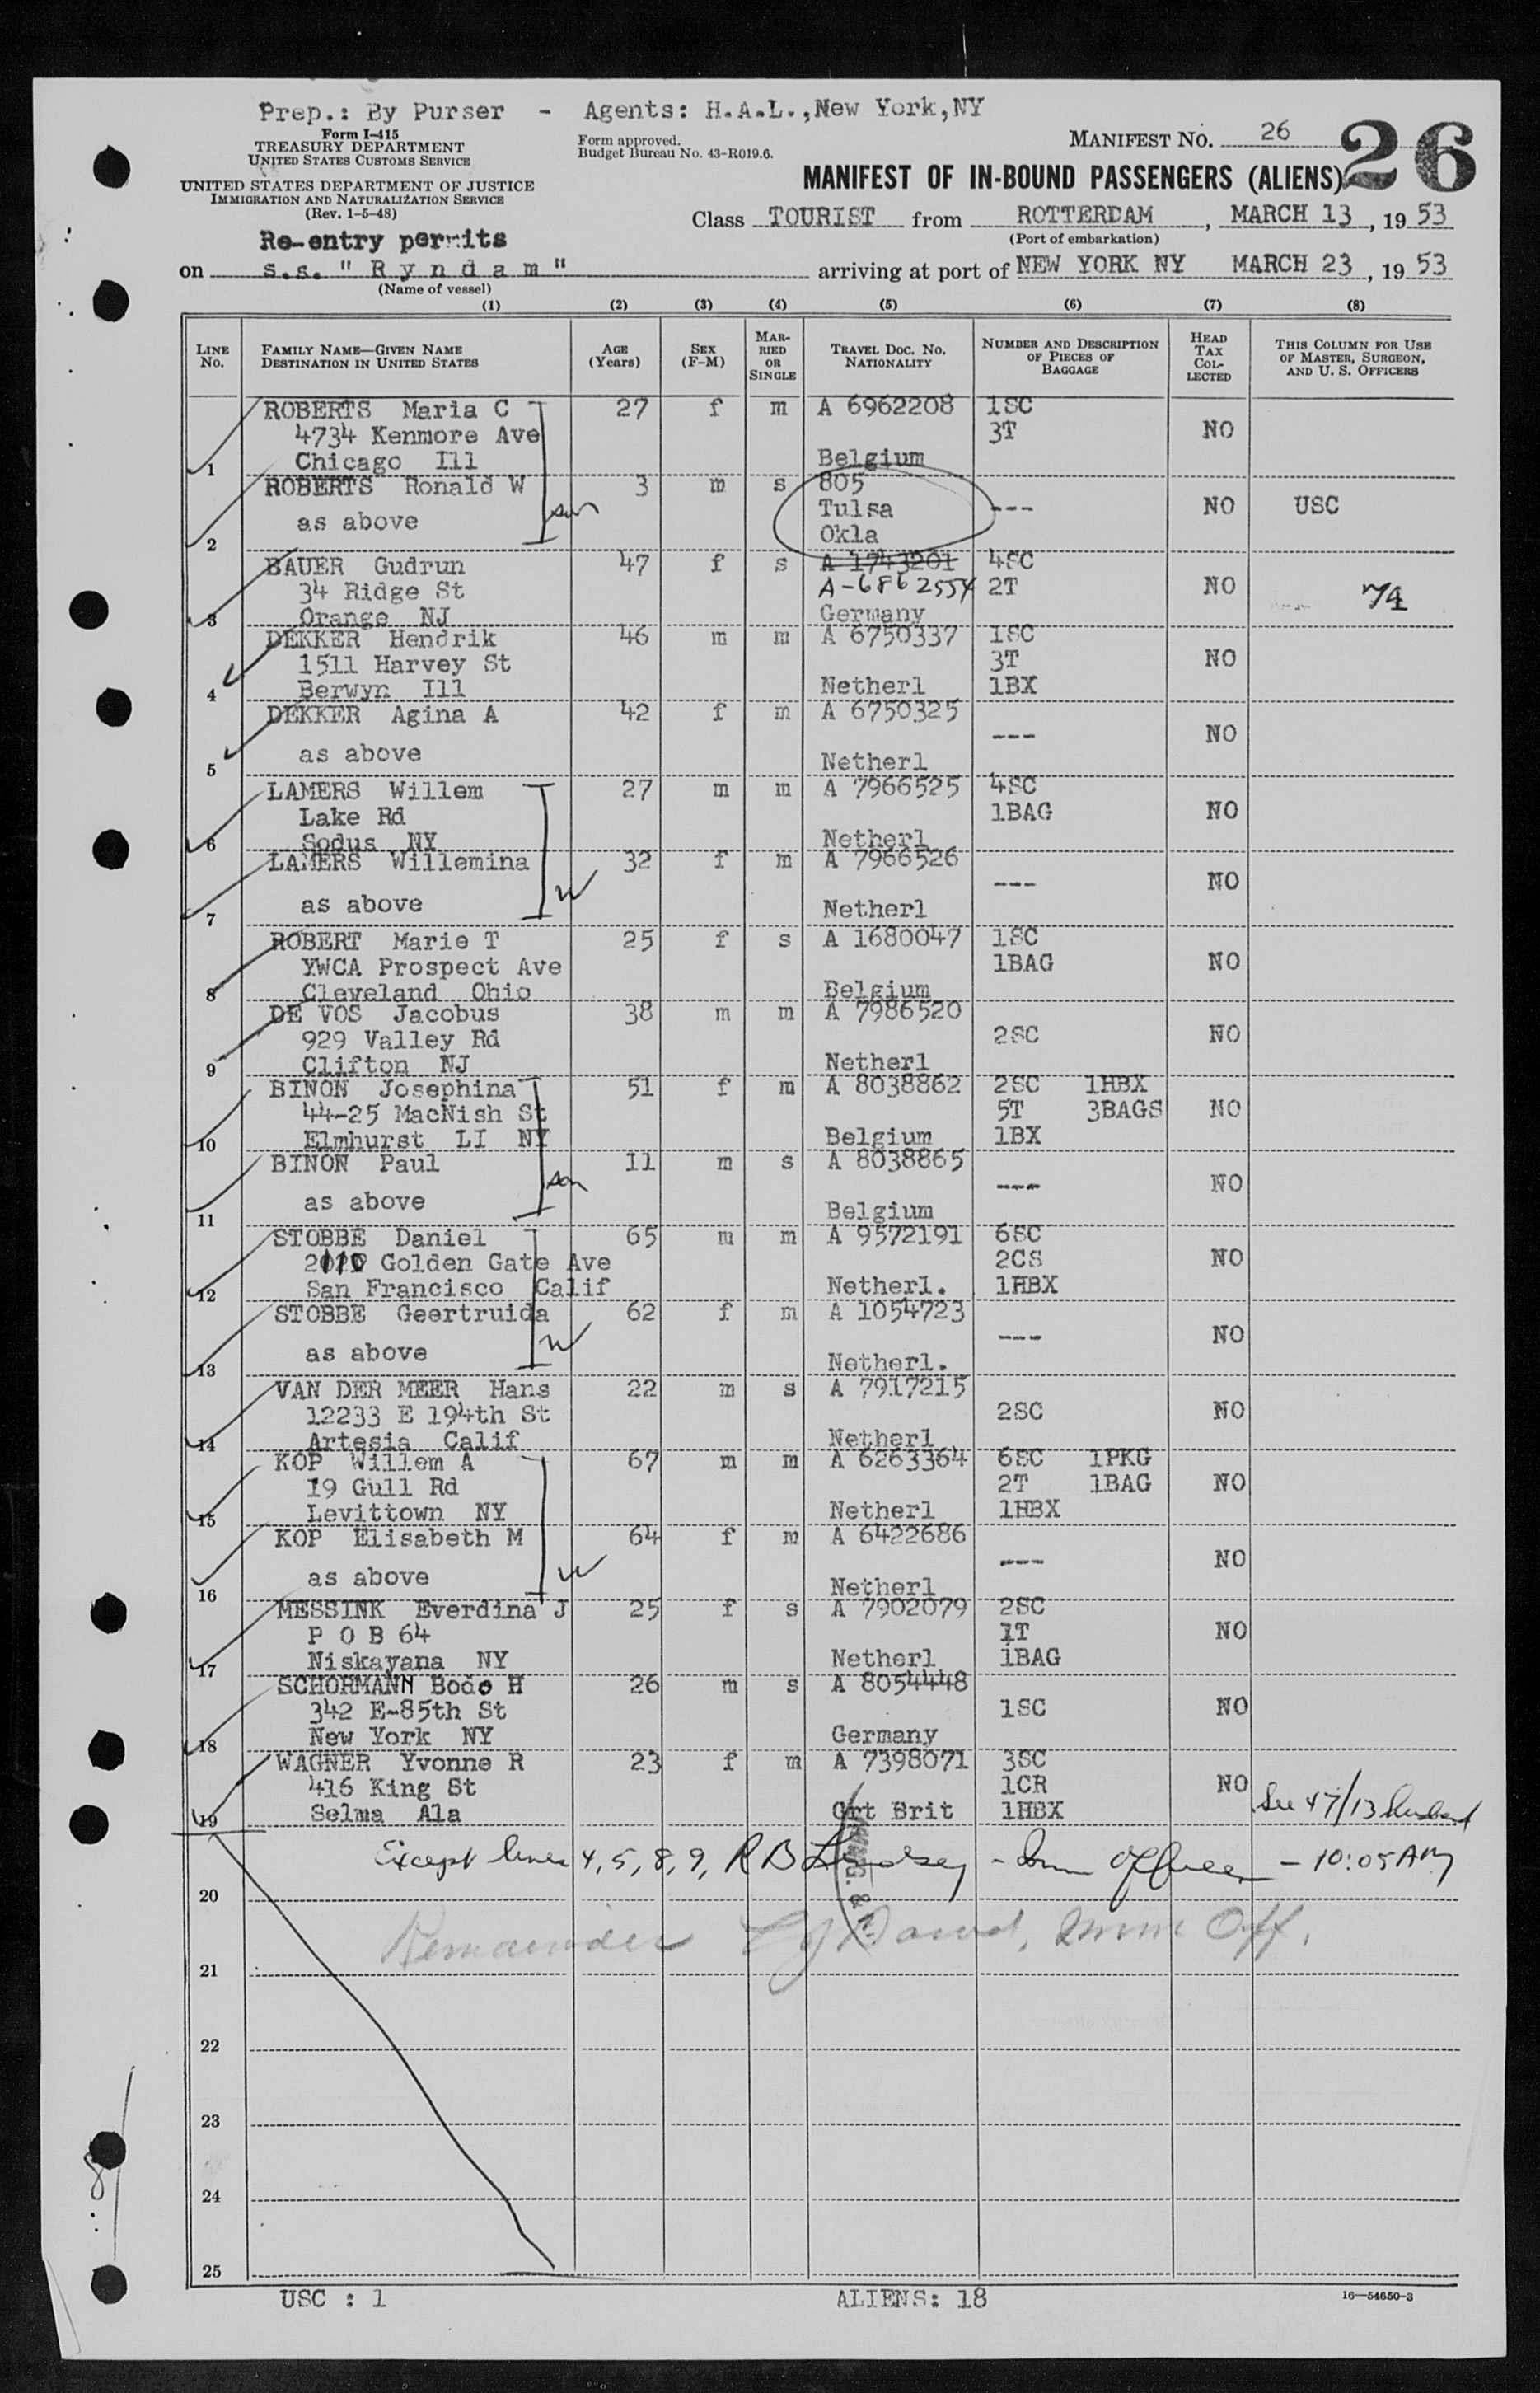 Prep.: By Purser - Agents: H.A.L.,New York,NY
Form I-415
TREASURY DEPARTMENT
UNITED STATES CUSTOMS SERVICE
Form approved.
Budget Bureau No. 43-R019.6.
MANIFEST NO. 26
26
UNITED STATES DEPARTMENT OF JUSTICE
IMMIGRATION AND NATURALIZATION SERVICE
(Rev. 1-5-48)
MANIFEST OF IN-BOUND PASSENGERS (ALIENS)
Class TOURIST from ROTTERDAM, MARCH 13, 1953
(Port of embarkation)
Re-entry permits
on s.s. "Ryndam" arriving at port of NEW YORK NY MARCH 23, 1953
(Name of vessel)
(1) (2) (3) (4) (5) (6) (7) (8)
LINE No. FAMILY NAME—GIVEN NAME DESTINATION IN UNITED STATES AGE (Years) SEX (F-M) MARRIED OR SINGLE TRAVEL DOC. NO. NATIONALITY NUMBER AND DESCRIPTION OF PIECES OF BAGGAGE HEAD TAX COLLECTED THIS COLUMN FOR USE OF MASTER, SURGEON, AND U. S. OFFICERS
ROBERTS Maria C 27 f m A 6962208 1SC
4734 Kenmore Ave 3T NO
1 Chicago Ill Belgium
ROBERTS Ronald W 3 m s 805
as above son Tulsa --- NO USC
2 Okla
BAUER Gudrun 47 f s A 1743201 4SC
34 Ridge St A-6862554 2T NO 74
3 Orange NJ Germany
DEKKER Hendrik 46 m m A 6750337 1SC
1511 Harvey St 3T NO
4 Berwyn Ill Netherl 1BX
DEKKER Agina A 42 f m A 6750325
as above --- NO
5 Netherl
LAMERS Willem 27 m m A 7966525 4SC
Lake Rd 1BAG NO
6 Sodus NY Netherl
LAMERS Willemina 32 f m A 7966526
w --- NO
7 as above Netherl
ROBERT Marie T 25 f s A 1680047 1SC
YWCA Prospect Ave 1BAG NO
8 Cleveland Ohio Belgium
DE VOS Jacobus 38 m m A 7986520
929 Valley Rd 2SC NO
9 Clifton NJ Netherl
BINON Josephina 51 f m A 8038862 2SC 1HBX
44-25 MacNish St 5T 3BAGS NO
10 Elmhurst LI NY Belgium 1BX
BINON Paul 11 m s A 8038865
as above son --- NO
11 Belgium
STOBBE Daniel 65 m m A 9572191 6SC
Golden Gate Ave 2CS NO
12 San Francisco Calif Netherl. 1HBX
STOBBE Geertruida 62 f m A 1054723
as above w --- NO
13 Netherl.
VAN DER MEER Hans 22 m s A 7917215
12233 E 194th St 2SC NO
14 Artesia Calif Netherl
KOP Willem A 67 m m A 6263364 6SC 1PKG
19 Gull Rd 2T 1BAG NO
15 Levittown NY Netherl 1HBX
KOP Elisabeth M 64 f m A 6422686
as above w --- NO
16 Netherl
MESSINK Everdina J 25 f s A 7902079 2SC
P O B 64 1T NO
17 Niskayana NY Netherl 1BAG
SCHORMANN Bodo H 26 m s A 8054448
342 E-85th St 1SC NO
18 New York NY Germany
WAGNER Yvonne R 23 f m A 7398071 3SC
416 King St 1CR NO See 47/13 husband
19 Selma Ala Grt Brit 1HBX
Except lines 4, 5, 8, 9, R B Lindsey - Imm Officer - 10:05 AM
20
Remainder Imm Off.
21
22
23
24
25
USC : 1 ALIENS: 18 16—54650-3